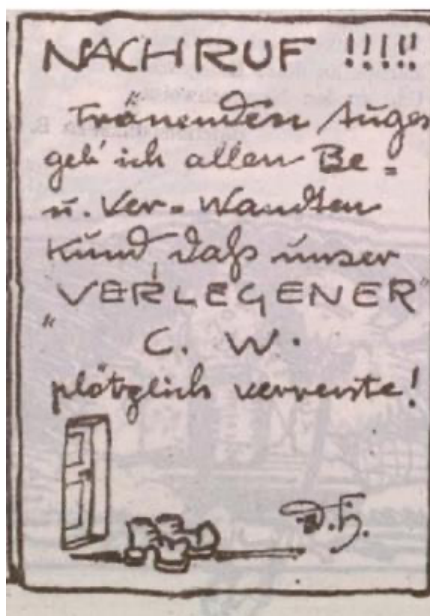 NACHRUF !!!!!
Tränenden Auges
geb' ich allen Be=
u. Ver=Wandten
Kund, daß unser
"VERLEGENER"
C. W.
plötzlich verreiste!